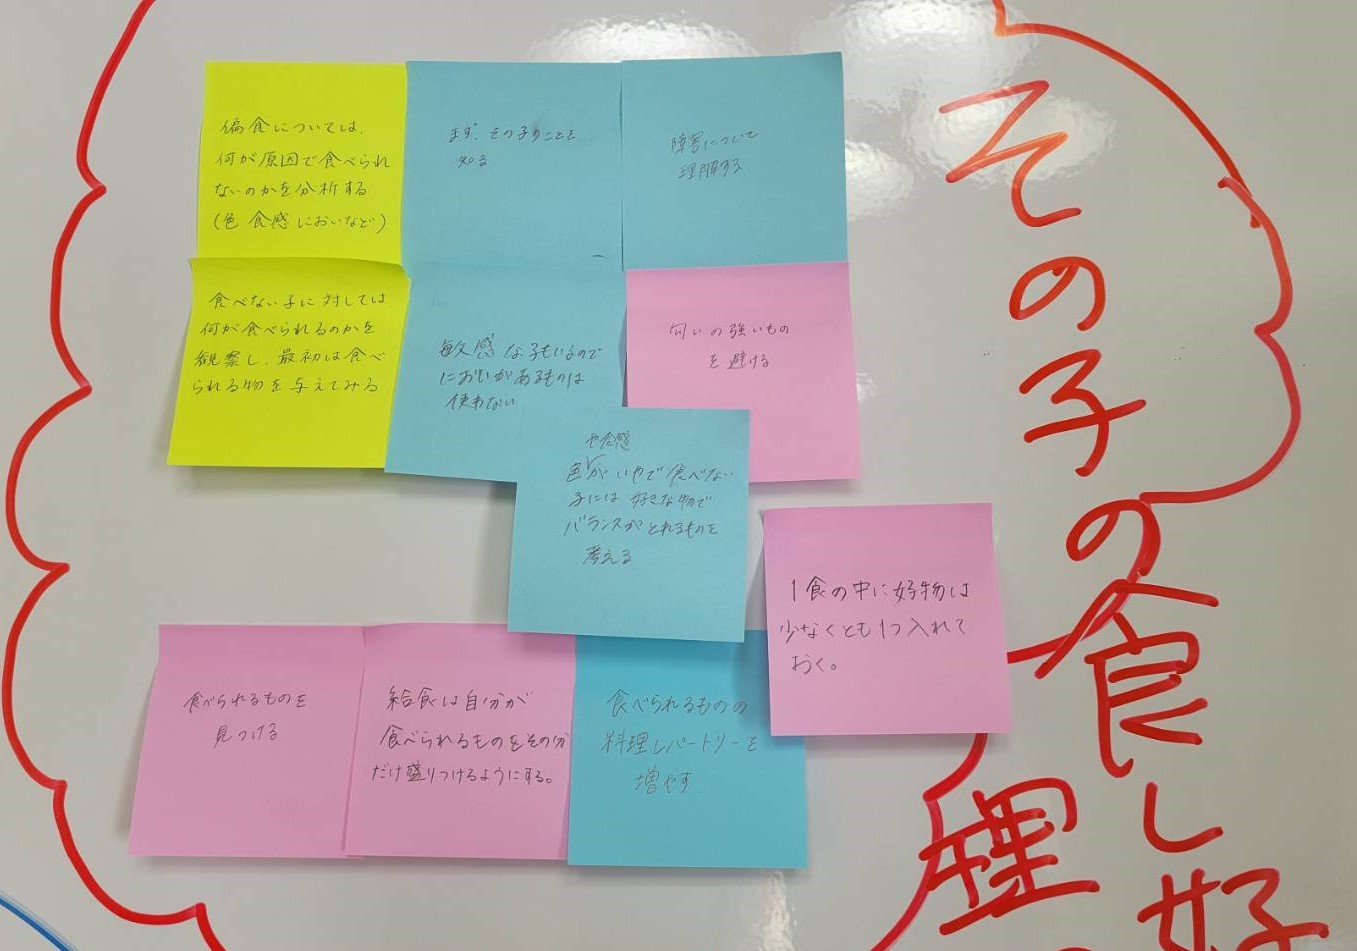 偏食については、
何が原因で食べられ
ないのかを分析する
(色 食感 においなど)
まず、その子のことを
知る
障害について
理解する
食べない子に対しては
何が食べられるのかを
観察し、最初は食べ
られる物を与えてみる
敏感な子もいるので
においがあるものは
使わない
匂いの強いもの
を避ける
や食感
色がいやで食べない
子には好きな物で
バランスがとれるものを
考える
1食の中に好物は
少なくとも1つ入れて
おく。
食べられるものを
見つける
給食は自分が
食べられるものをその分
だけ盛りつけるようにする。
食べられるものの
料理レパートリーを
増やす
その子の食し好
理